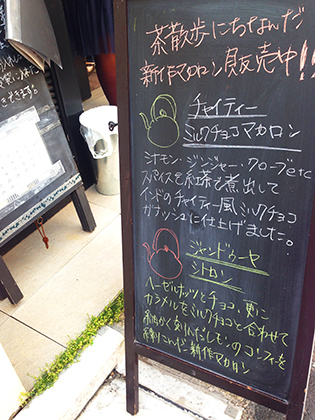 茶散歩にちなんだ
新作マカロン販売中!!
チャイティー
ミルクチョコマカロン
シナモン・ジンジャー・クローブetc
スパイスを紅茶で煮出して
インドのチャイティー風ミルクチョコ
ガナッシュに仕上げました。
ジャンドゥーヤ
シトロン
ヘーゼルナッツとチョコ、更に
カラメルをミルクチョコと合わせて
細かく刻んだレモンのコンフィを
練りこんだ新作マカロン